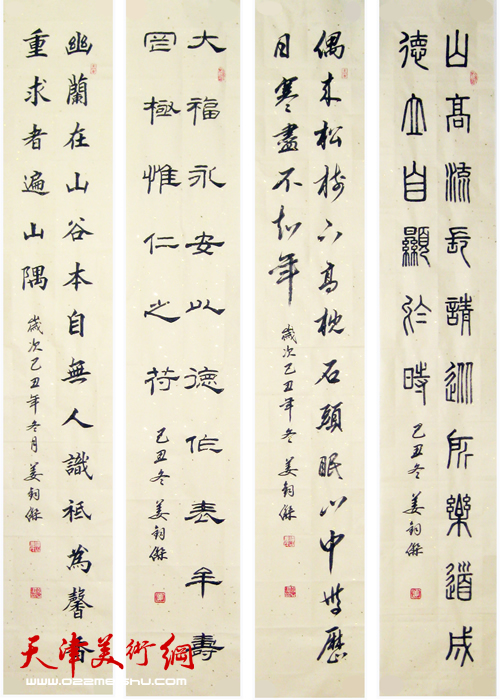 山高流長請巡所樂道成
德立自顯於時
乙丑冬姜鈞傑
偶來松樹下高枕石頭眠山中無歷
日寒盡不知年
歲次乙丑年冬姜鈞傑
大福永安以德作表年壽
罔極惟仁之符
乙丑冬姜鈞傑
幽蘭在山谷本自無人識祗為馨香
重求者遍山隅
歲次乙丑年冬月姜鈞傑
天津美術網
www.022meishu.com